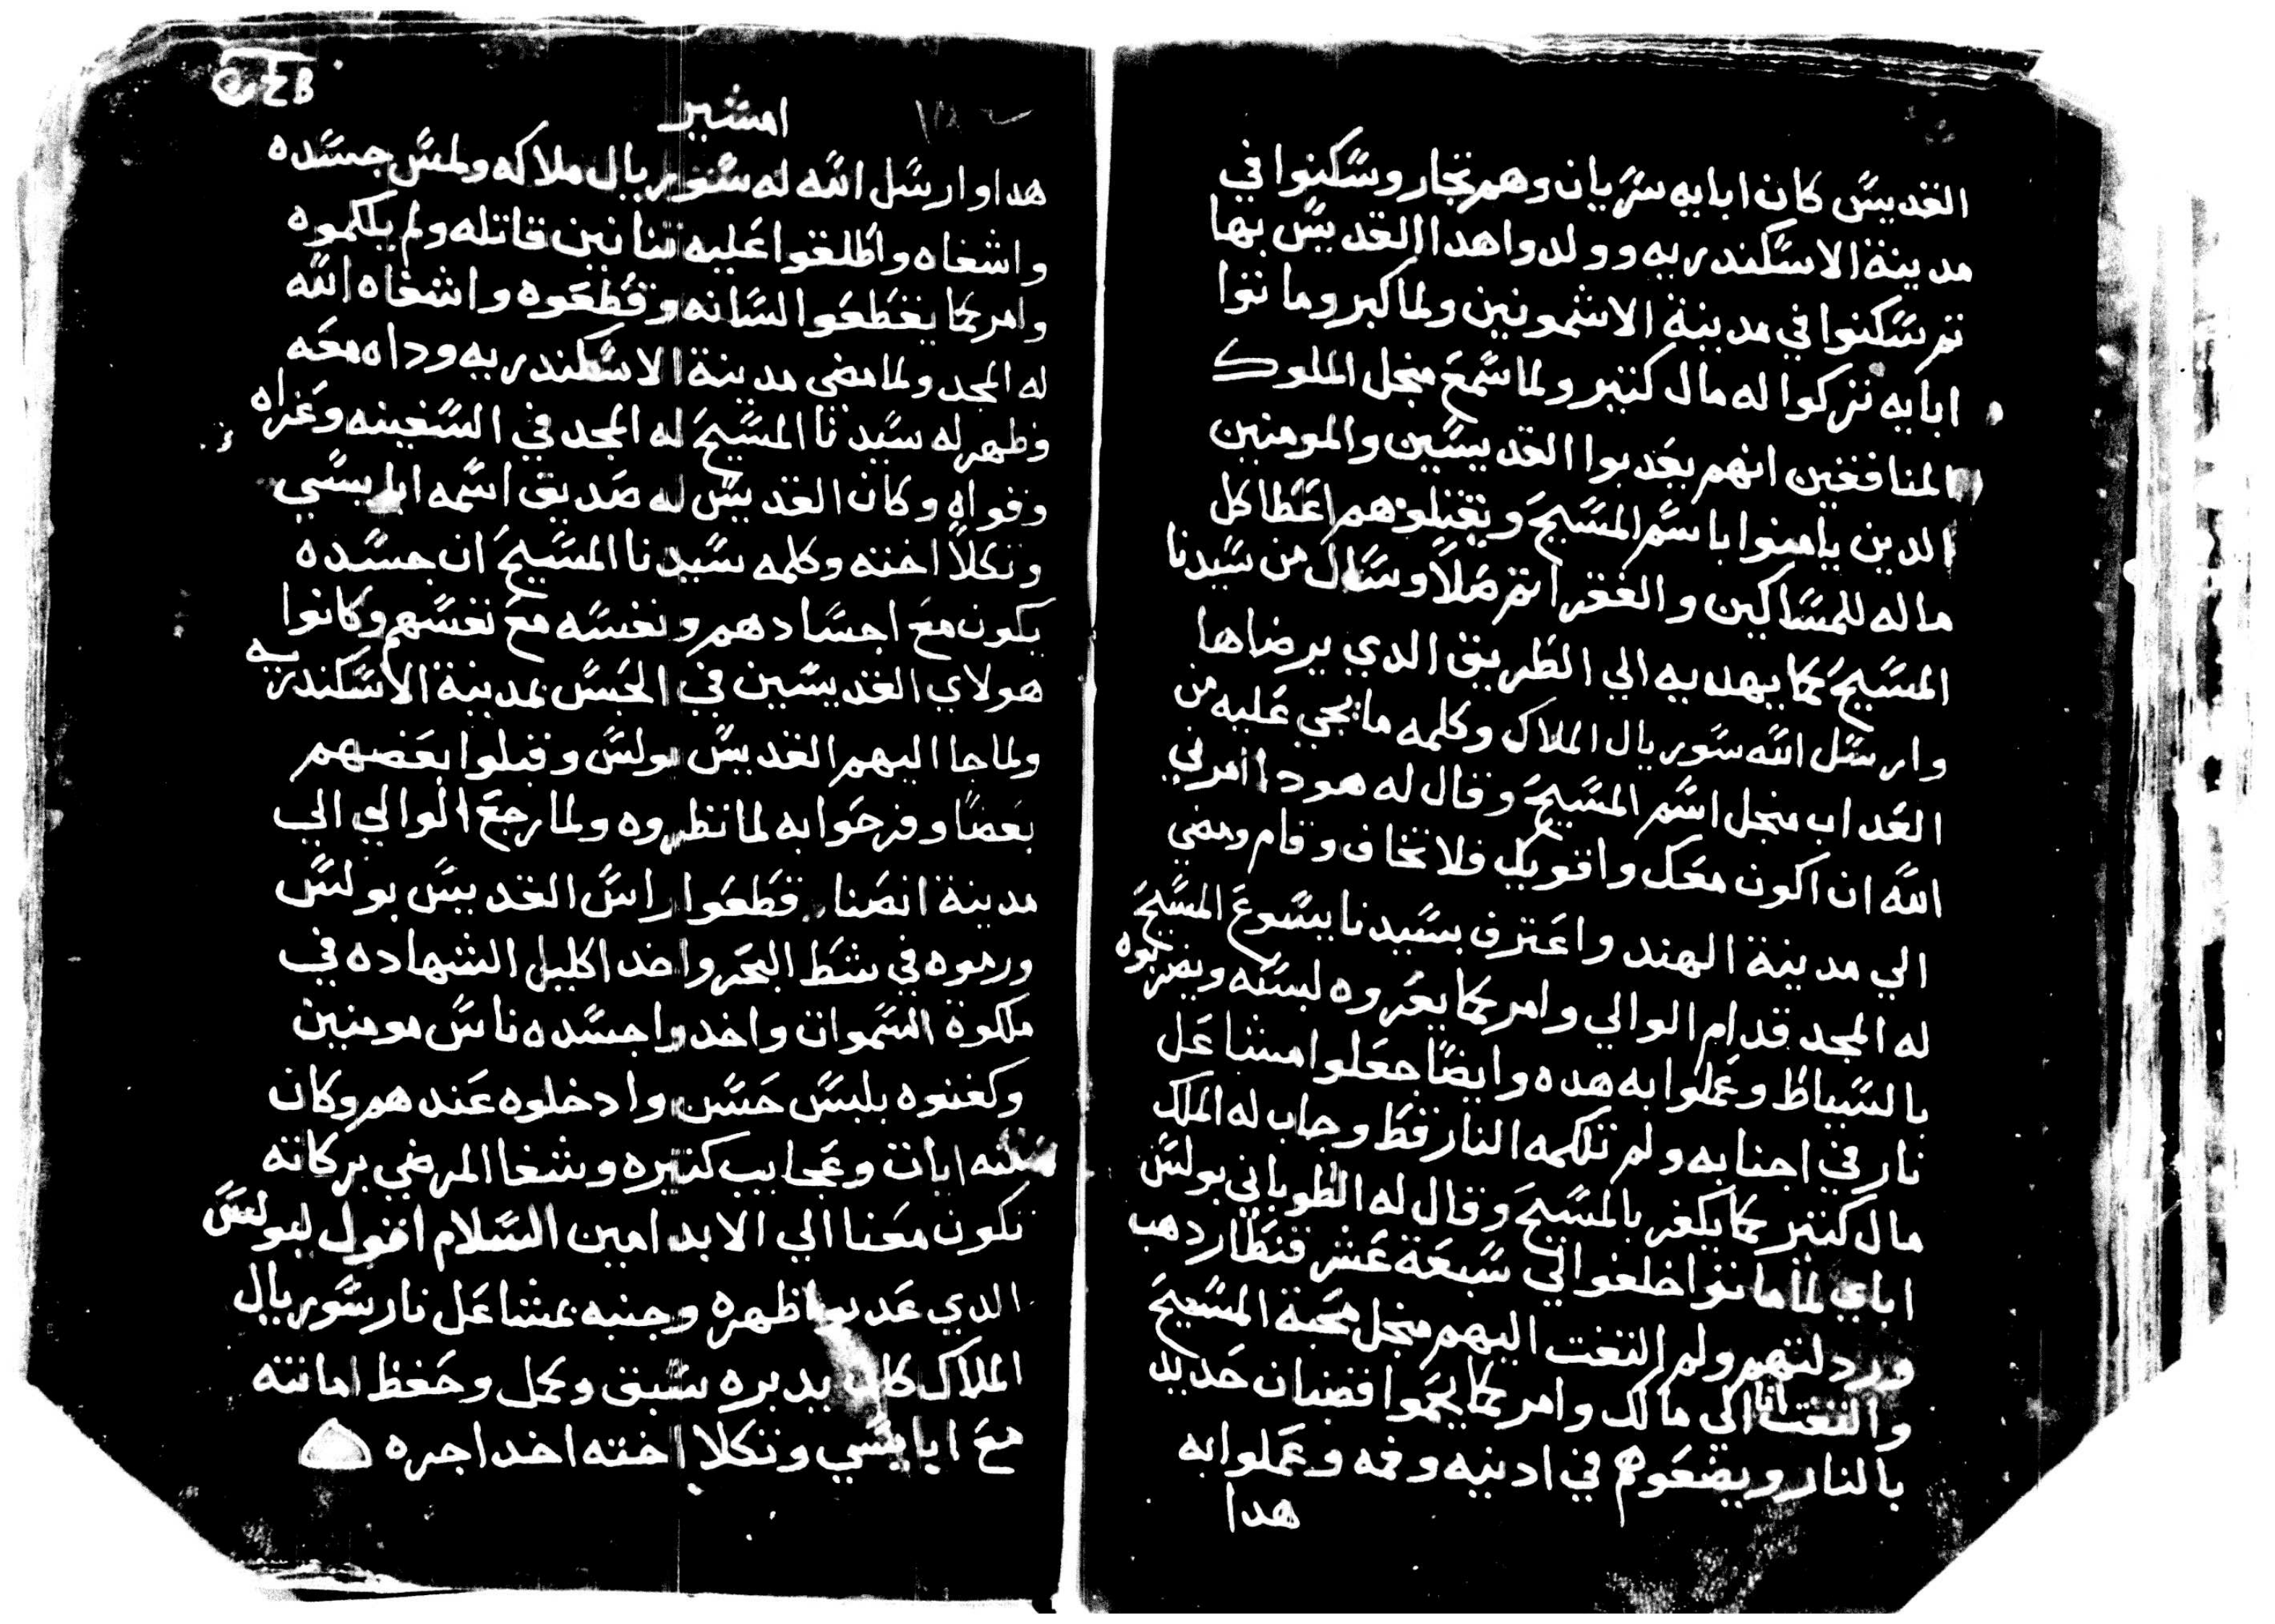 القديس كان ابايه سريان وهم تجار وسكنوا في
مدينة الاسكندريه وولدوا هدا القديس بها
تم سكنوا في مدينة الاشمونين ولما كبر وماتوا
ابايه تركوا له مال كتير ولما سمع منجل الملوك
المنافقين انهم يعدبوا القديسين والمومنين
الدين يامنوا باسم المسيح ويقتلوهم اعطا كل
ماله للمساكين والفقرا تم صلا وسال من سيدنا
المسيح كما يهديه الي الطريق الدي يرضاها
وارسل الله سوريال الملاك وكلمه ما يجي عليه من
العداب منجل اسم المسيح وقال له هودا امرني
الله ان اكون معك واقويك فلا تخاف وقام ومضي
الي مدينة الهند واعترف بسيدنا يسوع المسيح
له المجد قدام الوالي وامر كما يعروه لبسه ويضربوه
بالسياط وعملوا به هده وايضا جعلوا مشاعل
نار في اجنابه ولم تلكمه النار قط وجاب له الملك
مال كتير كما يكفر بالمسيح وقال له الطوباني بولس
اباي لما ماتوا خلفوا لي سبعة عشر قنطار دهب
وردلتهم ولم التفت اليهم منجل محبة المسيح
والتفت انا الى مالك وامر كما يحموا قضبان حديد
بالنار ويضعوهم في ادنيه وفمه وعملوا به
هدا
امشير
هدا وارسل الله له سوريال ملاكه ولمس جسده
واشفاه واطلقوا عليه تنانين قاتله ولم يلكموه
وامر كما يقطعوا لسانه وقطعوه واشفاه الله
له المجد ولما مضي مدينة الاسكندريه وداه معه
وظهر له سيدنا المسيح له المجد في السفينه وعزاه
وقواه وكان القديس له صديق اسمه ابا بسي
وتكلا اخته وكلمه سيدنا المسيح ان جسده
يكون مع اجسادهم ونفسه مع نفسهم وكانوا
هولاي القديسين في الحبس بمدينة الاسكندريه
ولما جا اليهم القديس بولس وقبلوا بعضهم
بعضا وفرحوا به لما نظروه ولما رجع الوالي الي
مدينة انصنا قطعوا راس القديس بولس
ورموه في شط البحر واخد اكليل الشهاده في
ملكوة السموات واخدوا جسده ناس مومنين
وكفنوه بلبس حسن وادخلوه عندهم وكان
منه ايات وعجايب كتيره وشفا المرضي بركاته
تكون معنا الي الابد امين السلام اقول لبولس
الدي عدبوا ظهره وجنبه بمشاعل نار سوريال
الملاك كان يدبره سبق وكمل وحفظ امانته
مع ابا بسي وتكلا اخته اخد اجره